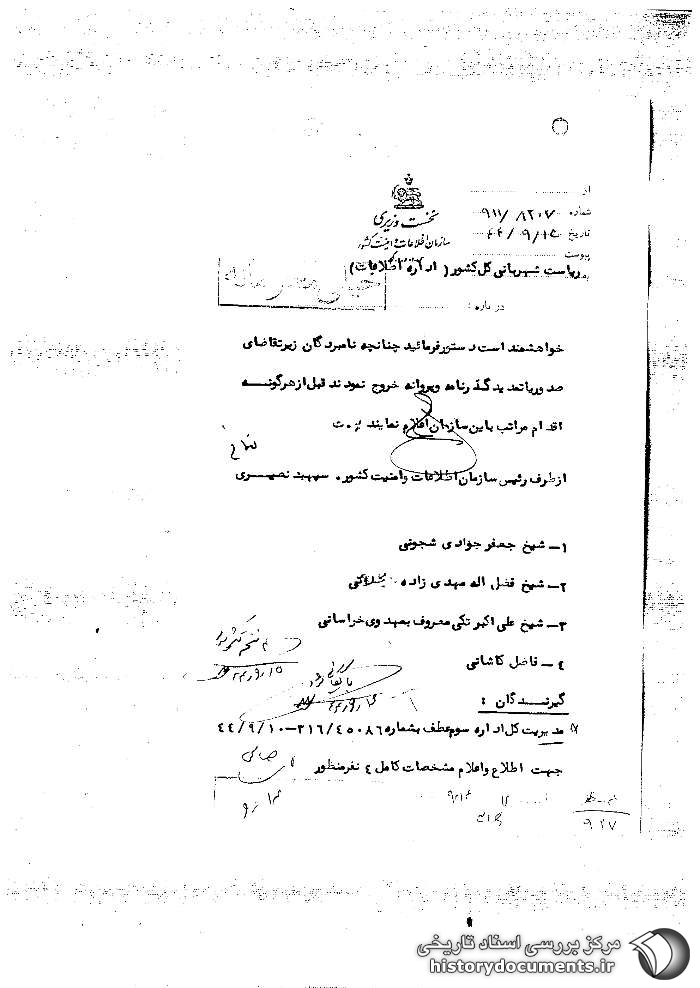 از
نخست وزیری
شماره ۹۱۱/۸۲۰۷
سازمان اطلاعات و امنیت کشور
تاریخ ۴۴/۹/۱۵
پیوست
ریاست شهربانی کل کشور ( اداره اطلاعات )
خیلی محرمانه
درباره :
خواهشمند است دستور فرمائید چنانچه نامبردگان زیر تقاضای
صدور یا تمدید گذرنامه و پروانه خروج نمودند قبل از هرگونه
اقدام مراتب باین سازمان اعلام نمایند
از طرف رئیس سازمان اطلاعات و امنیت کشور . سپهبد نصیری
۱ـ شیخ جعفر جوادی شجونی
۲ـ شیخ فضل اله مهدی زاده
۳ـ شیخ علی اکبر تکی معروف بمهدوی خراسانی
۴ـ فاضل کاشانی
گیرندگان :
مدیریت کل اداره سوم عطف بشماره ۳۱۶/۴۵۰۸۶-۴۴/۹/۱۰
جهت اطلاع و اعلام مشخصات کامل ۴ نفر منظور
۹۲۷
مرکز بررسی اسناد تاریخی
historydocuments.ir